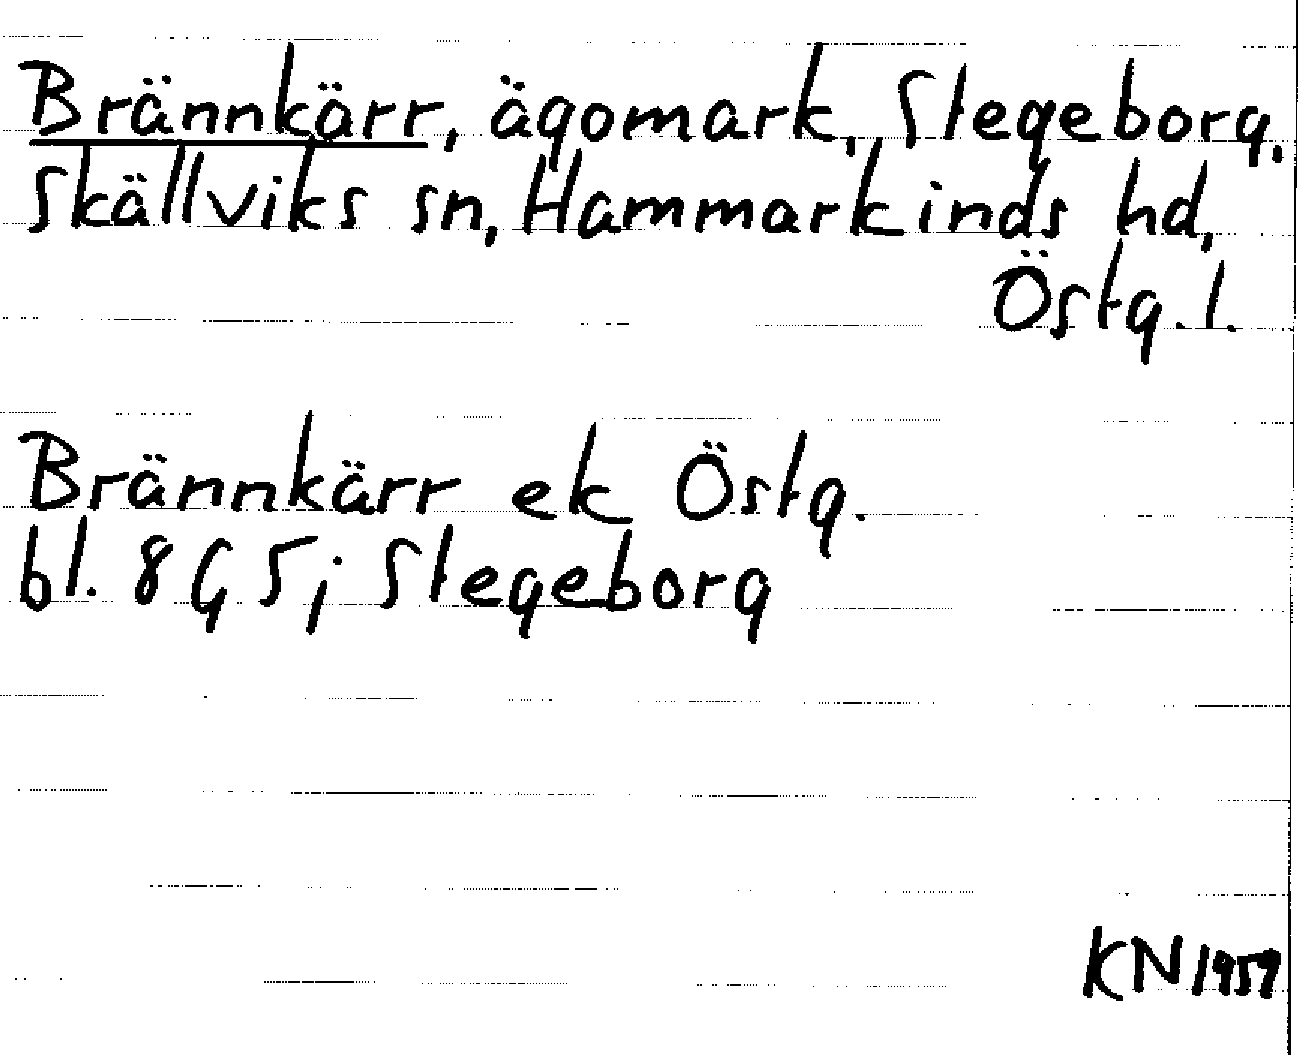 Brännkärr, ägomark, Stegeborg,
Skällviks sn, Hammarkinds hd,
Östg. l.
Brännkärr ek Östg.
bl. 8G5j Stegeborg
KN 1959